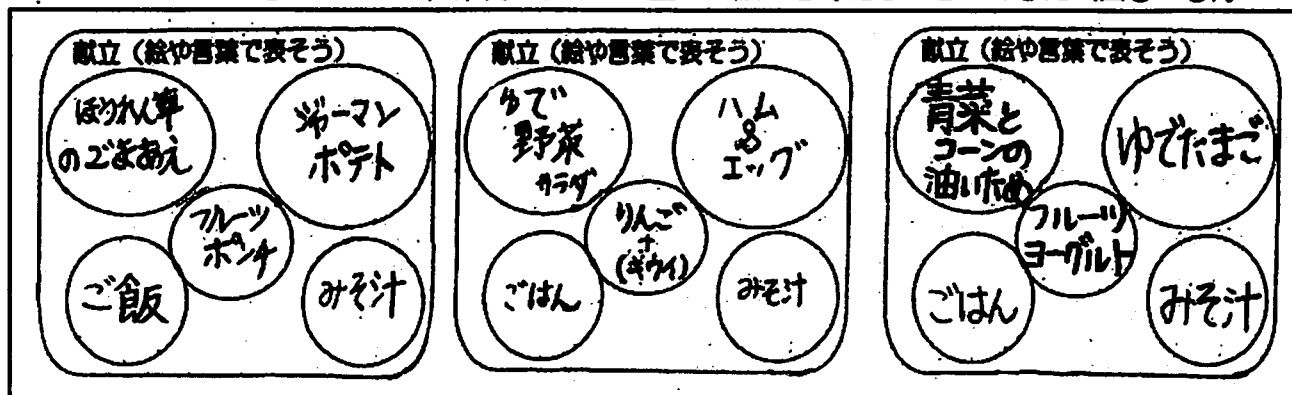 献立（絵や言葉で表そう）
ほうれん草
のごまあえ
ジャーマン
ポテト
フルーツ
ポンチ
ご飯
みそ汁
献立（絵や言葉で表そう）
ゆで
野菜
サラダ
ハム
&
エッグ
りんご
+
(キウイ)
ごはん
みそ汁
献立（絵や言葉で表そう）
青菜と
コーンの
油いため
ゆでたまご
フルーツ
ヨーグルト
ごはん
みそ汁